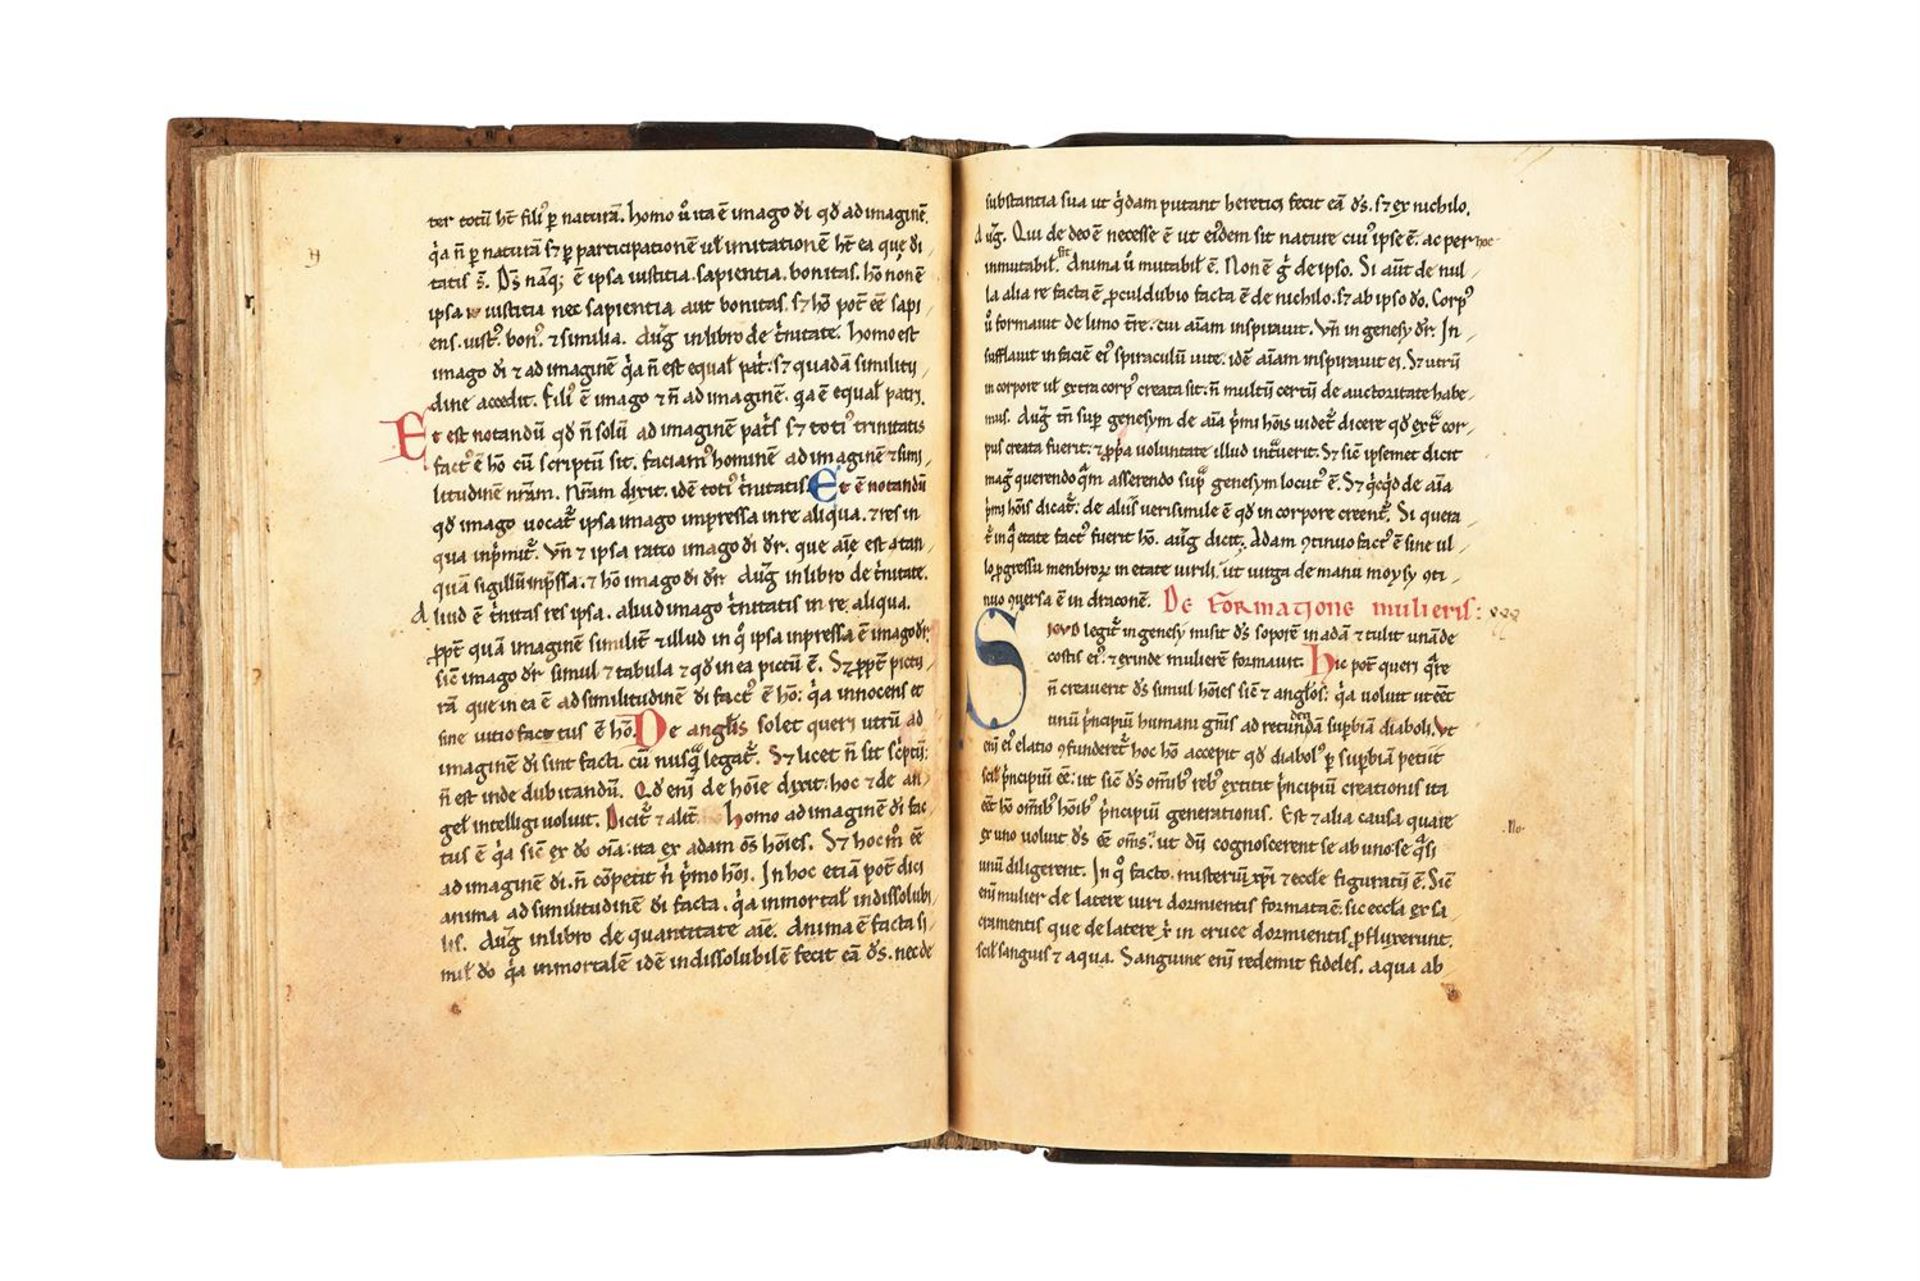 ter totū hт̄ fili᷒ ꝑ naturā. homo ũ ita ē imago dī qđ ad imaginē.
q̇a n̄ ꝑ naturā sꝫ ꝑ participationē ul̄ imitationē hт̄ ea que di
tatis s̄. Ds̄ nāq; ē ipsa iustitia. sapientia. bonitas. hō nō nē
ipsa iustitia nec sapientia aut bonitas. sꝫ hō pot̄ eē sapi
ens. iust᷒. bon᷒. ⁊ similia. Aug̃ in libro de ṫnitate. homo est
imago dī ⁊ ad imaginē q̇a n̄ est equal̄ paṫ. sꝫ quadā similitu
dine accedit. fili᷒ ē imago ⁊ n̄ ad imaginē. qa ē equal̄ patri.
Et est notandū qđ n̄ solū ad imaginē paṫs sꝫ toti᷒ trinitatis
fact᷒ ē hō cū scriptū sit. faciam᷒ hominē ad imaginē ⁊ simi
litudinē nr̄am. Nr̄am dixit. idē toti᷒ ṫnitatis. Et ē notandū
qđ imago uocat᷑ ipsa imago impressa in re aliqua. ⁊ res in
qua inṗmit᷑. Vn̄ ⁊ ipsa ratio imago dī dr̄. que aīe est atan
quā sigillū inp̄ssa. ⁊ hō imago dī dr̄. Aug̃ in libro de ṫnitate.
Aliud ē ṫnitas res ipsa. aliud imago ṫnitatis in re aliqua.
ꝓpt̄ quā imaginē similit̄ ⁊ illud in q̊ ipsa inpressa ē imago dr̄.
sic̄ imago dr̄ simul ⁊ tabula ⁊ qđ in ea pictū ē. Sꝫ ꝓpt̄ pictu
rā que in ea ē ad similitudinē dī fact᷒ ē hō: q̇a innocens et
sine uitio factus ē hō. De angl̄is solet queri utrū ad
imaginē dī sint facti. cū nusq̃ legat᷑. Sꝫ licet n̄ sit sċptū:
n̄ est inde dubitandū. Qđ enī de hōie dixit: hoc ⁊ de an
gel̄ intelligi uoluit. Dicit᷑ ⁊ alit̄ homo ad imaginē dī fac
tus ē q̇a sic̄ ex dō oīa: ita ex adam om̄s hōies. Sꝫ hoc m̊ eē
ad imaginē dī. n̄ cōpetit n̄ ṗmo hōi. In hoc etiā pot̄ dici
anima ad similitudinē dī facta. q̇a inmortal̄ indissolubi
lis. Aug̃ in libro de quantitate aīe. Anima ē facta si
mil̄ dō q̇a inmortalē idē indissolubilē fecit eā ds̄. nec de
substantia sua ut q̇dam putant heretici fecit eā ds̄. sꝫ ex nichilo.
Aug̃. Qui de deo ē necesse ē ut ei᷒dem sit nature cui᷒ ipse ē. ac per hoc
inmutabil̄ sit. Anima ũ mutabil̄ ē. Non ē g̊ de ipso. Si aūt de nul
la alia re facta ē ꝓculdubio facta ē de nichilo. sꝫ ab ipso dō. Corp᷒
ũ formauit de limo t̄re. cui aīam inspirauit. Vn̄ in genesy dr̄. In
sufflauit in faciē ei᷒ spiraculū uite. idē aīam inspirauit ei. Sꝫ utrū
in corpore ul̄ extra corp᷒ creata sit. n̄ multū certū de auctoritate habe
mus. Aug̃ tn̄ sup̄ genesym de aīa ṗmi hōis uidet᷑ dicere qđ ext̃ cor
pus creata fuerit. ⁊ ꝓṗa uoluntate illud int̃uerit. Sꝫ sic̄ ipsemet dicit
mag̃ querendo q̃m asserendo sup̄ genesym locut᷒ ē. Sꝫ q̇cq̇d de aīa
ṗmi hōis dicat᷑: de aliis uerisimile ē qđ in corpore creent᷑. Si quera
t᷑ in q̃ etate fact᷒ fuerit hō. Aug̃ dicit. Adam ꝯtinuo fact᷒ ē sine ul
lo ꝓgressu menbroꝝ in etate uirili. ut uirga de manu moysy ꝯti
nuo ꝯuersa ē in draconē. De formatione mulieris:
Sicud legit᷑ in genesy misit ds̄ soporē in adā ⁊ tulit unā de
costis ei᷒. ⁊ exinde mulierē formauit. Hic pot̄ queri q̃re
n̄ creauerit ds̄ simul hōies sic̄ ⁊ angl̄os: q̇a uoluit ut eēt
unū ṗncipiū humani gn̄is ad retundendā sup̄biā diaboli. Vt
enī ei᷒ elatio ꝯfunderet᷑ hoc hō accepit qđ diabol᷒ ꝑ sup̄biā petiit
scil̄ ṗncipiū eē: ut sic̄ ds̄ om̄ib᷒ reb᷒ extitit ṗncipiū creationis ita
eēt hō om̄ib᷒ hōib᷒ ṗncipiū generationis. Est ⁊ alia causa quare
ex uno uoluit ds̄ eē om̄s. ut dū cognoscerent se ab uno: se q̃si
unū diligerent. In q̊ facto. misteriū xp̄i ⁊ eccl̄e figuratū ē. Sic̄
enī mulier de latere uiri dormientis formata ē: sic eccl̄a ex sa
cramentis que de latere x̄ in cruce dormientis ꝓfluxerunt.
scil̄ sanguis ⁊ aqua. Sanguine enī redemit fideles. aqua ab
No.